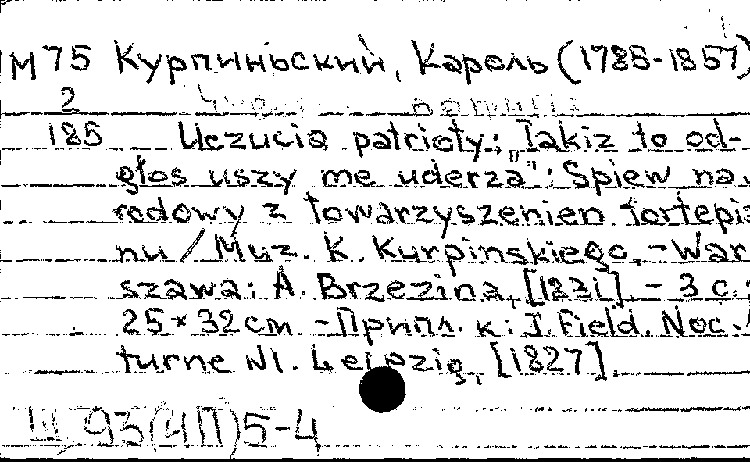 М75 Курпиньский, Карель (1785-1857)
2
185 Uczucia patrioty: „Jakiz to od-
głos uszy me uderza": Spiew na-
rodowy z towarzyszeniem fortepia
nu / Muz. K. Kurpinskiego. - War
szawa: A. Brzezina, [1831]. - 3 с.;
25×32 cm - Припл. к: J. Field. Noc-
turne N1. Leipzig, [1827].
Ш 93(4П)5-4